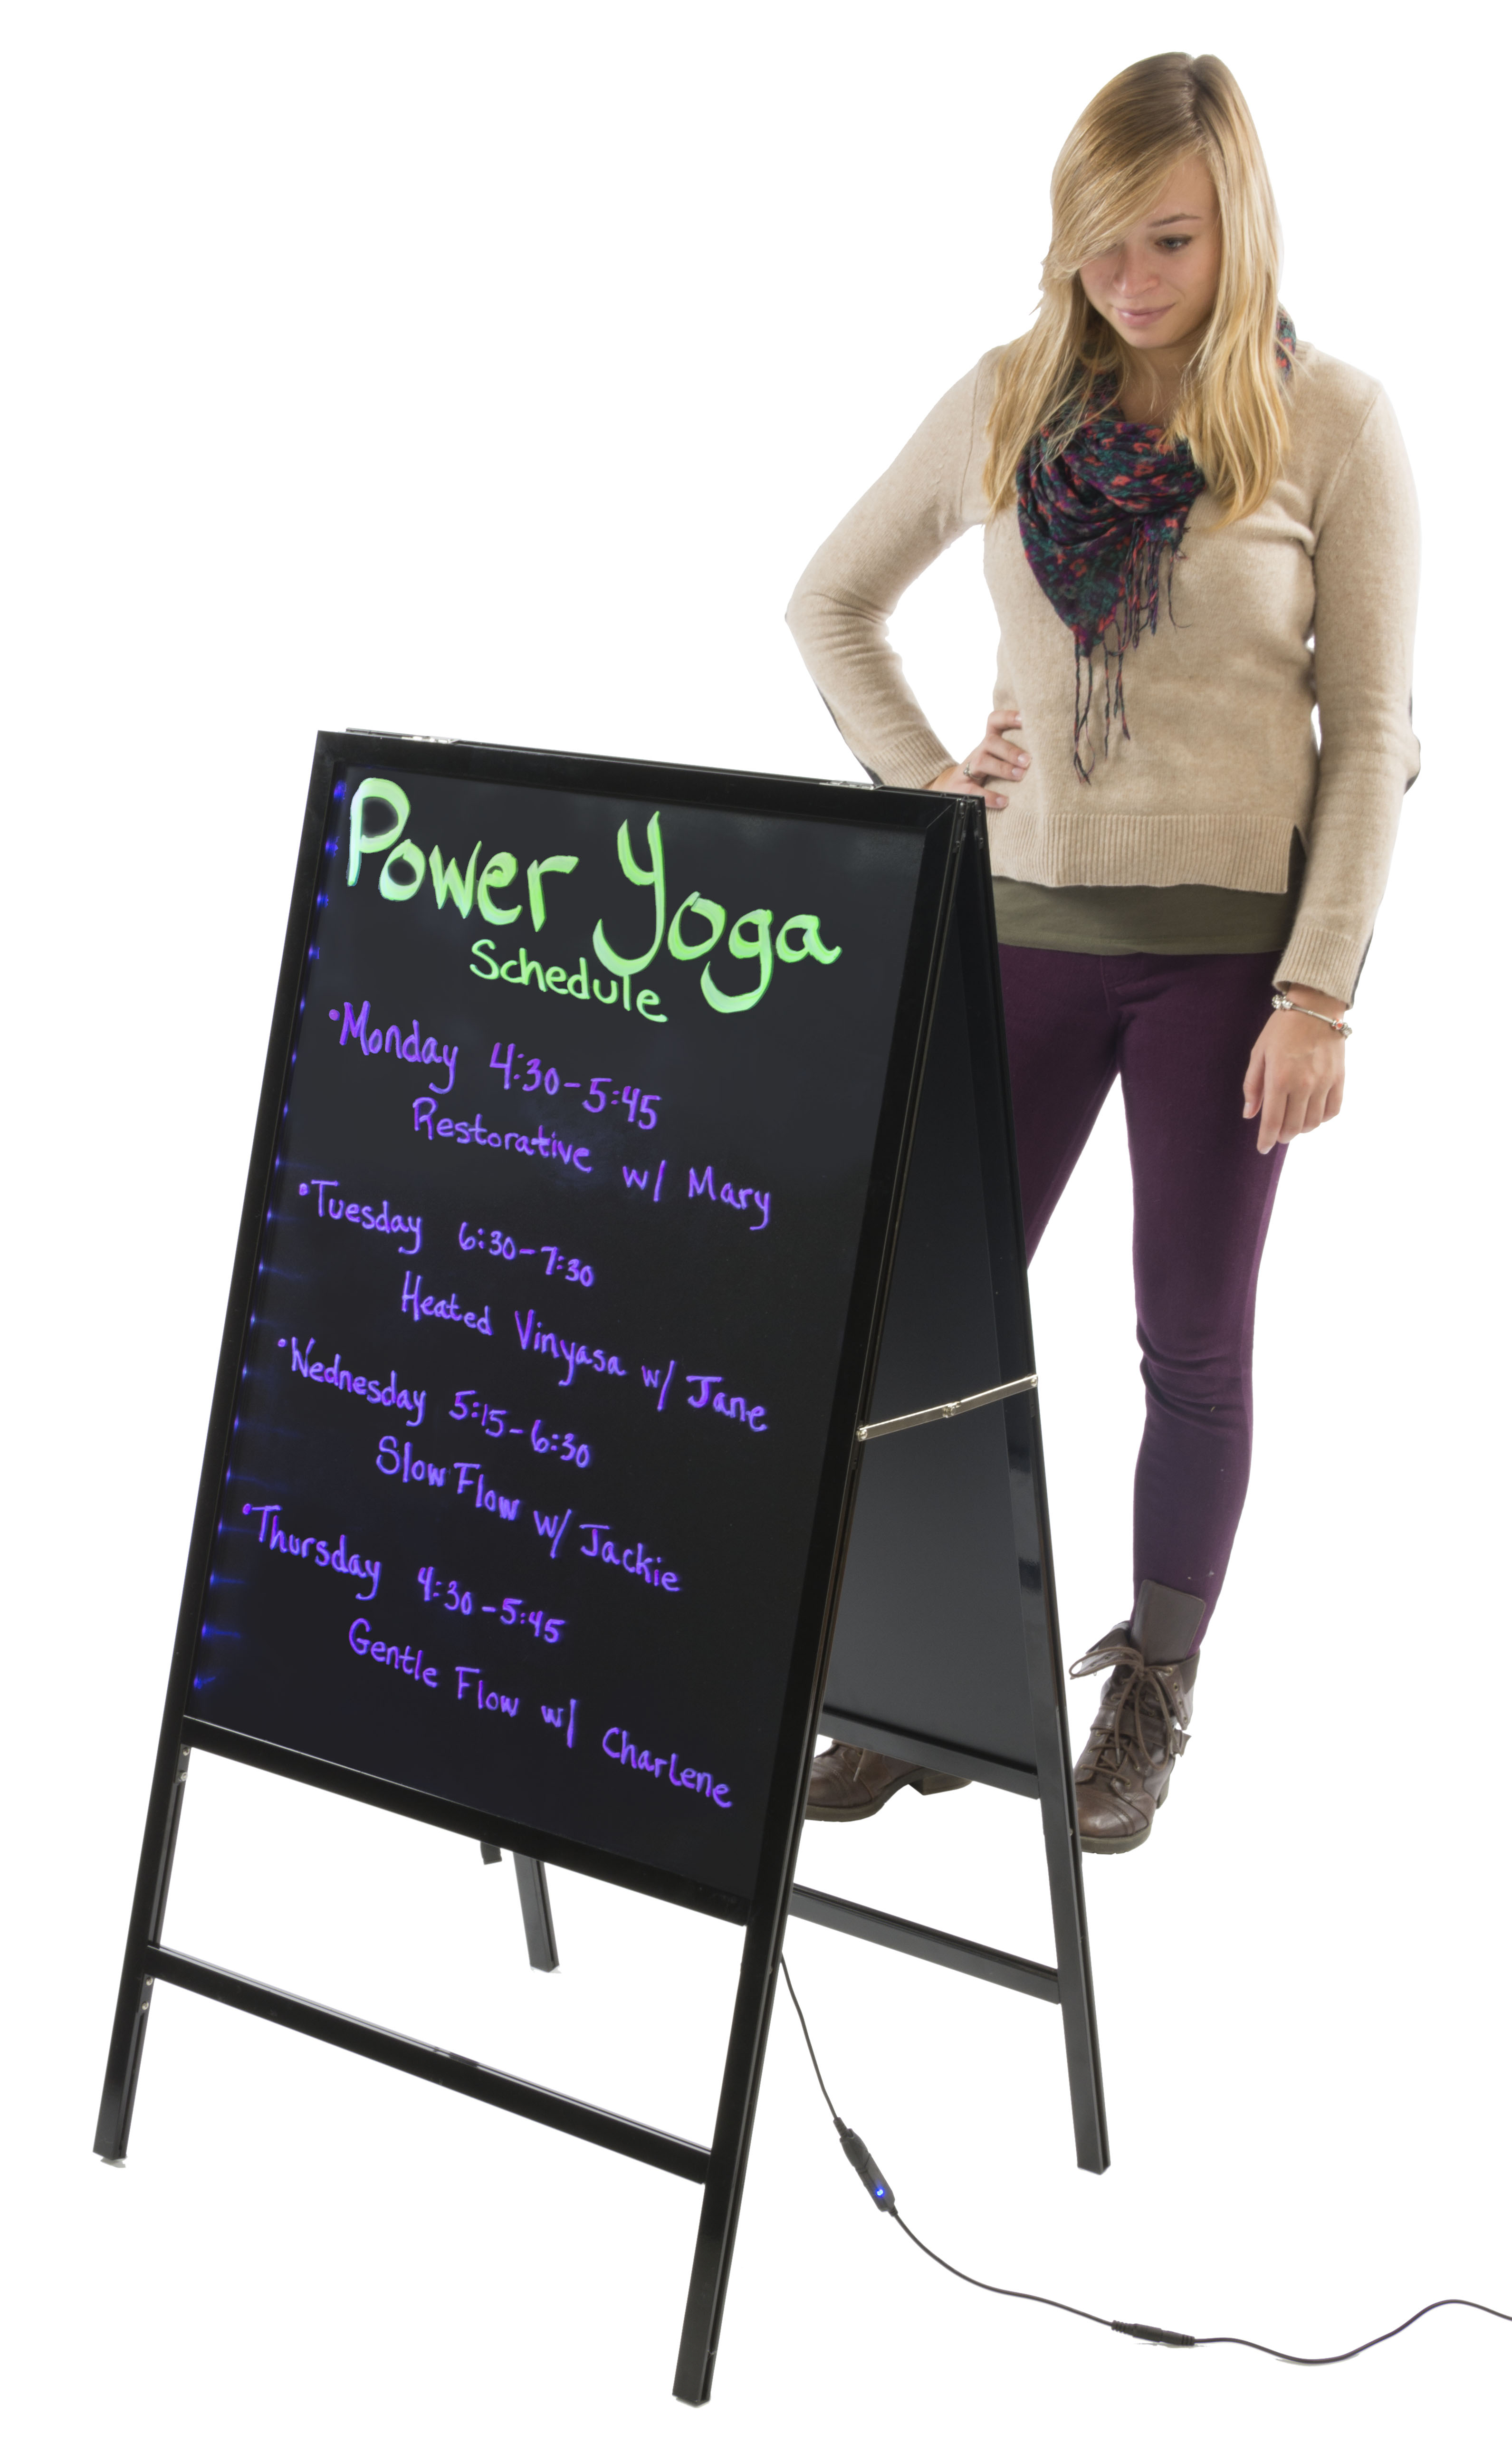 Power Yoga
Schedule
• Monday 4:30-5:45
Restorative w/ Mary
• Tuesday 6:30-7:30
Heated Vinyasa w/ Jane
• Wednesday 5:15-6:30
Slow Flow w/ Jackie
• Thursday 4:30-5:45
Gentle Flow w/ Charlene